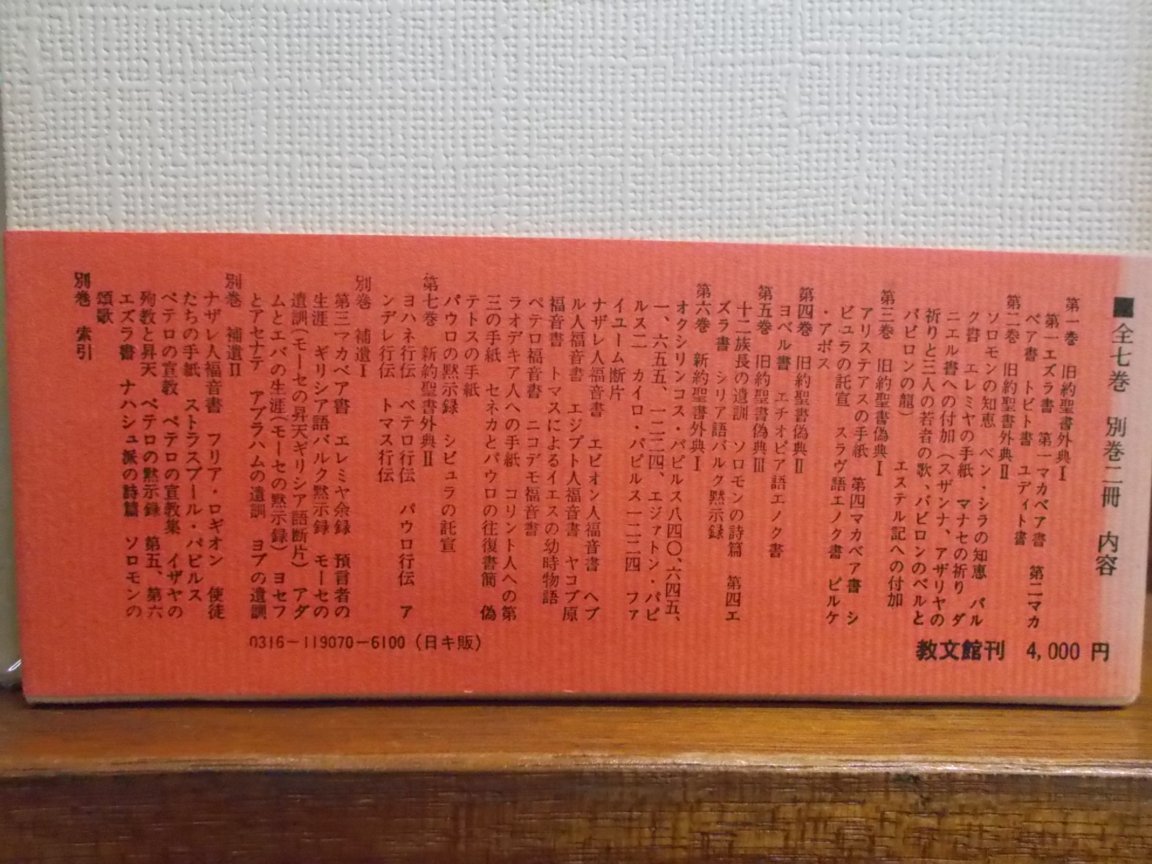 ■全七巻 別巻二冊 内容
第一巻 旧約聖書外典Ⅰ
第一エズラ書 第一マカベア書 第二マカ
ベア書 トビト書 ユディト書
第二巻 旧約聖書外典Ⅱ
ソロモンの知恵 ベン・シラの知恵 バル
ク書 エレミヤの手紙 マナセの祈り ダ
ニエル書への付加(スザンナ、アザリヤの
祈りと三人の若者の歌、バビロンのベルと
バビロンの龍) エステル記への付加
第三巻 旧約聖書偽典Ⅰ
アリステアスの手紙 第四マカベア書 シ
ビュラの託宣 スラヴ語エノク書 ピルケ
・アボス
第四巻 旧約聖書偽典Ⅱ
ヨベル書 エチオピア語エノク書
第五巻 旧約聖書偽典Ⅲ
十二族長の遺訓 ソロモンの詩篇 第四エ
ズラ書 シリア語バルク黙示録
第六巻 新約聖書外典Ⅰ
オクシリンコス・パピルス八四〇、六四五、
一、六五五、一二二四、エジァトン・パピ
ルス二 カイロ・パピルス一二二四 ファ
イユーム断片
ナザレ人福音書 エビオン人福音書 ヘブ
ル人福音書 エジプト人福音書 ヤコブ原
福音書 トマスによるイエスの幼時物語
ペテロ福音書 ニコデモ福音書
ラオデキア人への手紙 コリント人への第
三の手紙 セネカとパウロの往復書簡 偽
テトスの手紙
パウロの黙示録 シビュラの託宣
第七巻 新約聖書外典Ⅱ
ヨハネ行伝 ペテロ行伝 パウロ行伝 ア
ンデレ行伝 トマス行伝
別巻 補遺Ⅰ
第三マカベア書 エレミヤ余録 預言者の
生涯 ギリシア語バルク黙示録 モーセの
遺訓(モーセの昇天ギリシア語断片) アダ
ムとエバの生涯(モーセの黙示録) ヨセフ
とアセナテ アブラハムの遺訓 ヨブの遺訓
別巻 補遺Ⅱ
ナザレ人福音書 フリア・ロギオン 使徒
たちの手紙 ストラスブール・パピルス
ペテロの宣教 ペテロの宣教集 イザヤの
殉教と昇天 ペテロの黙示録 第五、第六
エズラ書 ナハシュ派の詩篇 ソロモンの
頌歌
別巻 索引
教文館刊 4,000円
0316-119070-6100(日キ販)